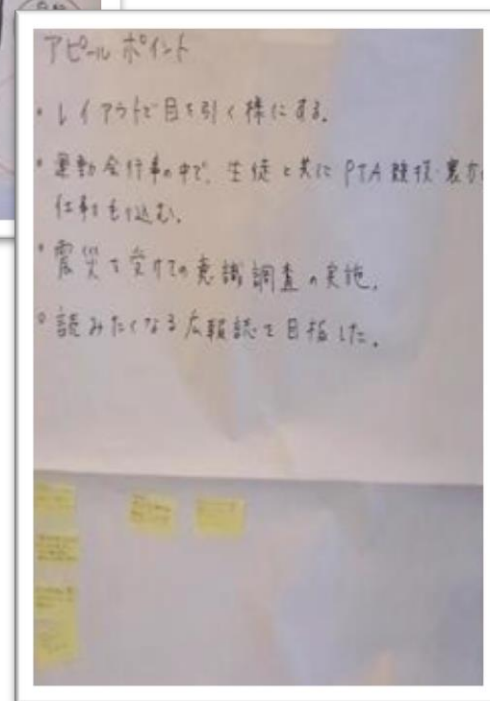 アピールポイント
・レイアウトで目を引く様にする。
・運動会行事の中で、生徒と共にPTA競技・裏方
仕事も込む。
・震災を受けての意識調査の実施。
・読みたくなる広報誌を目指した。